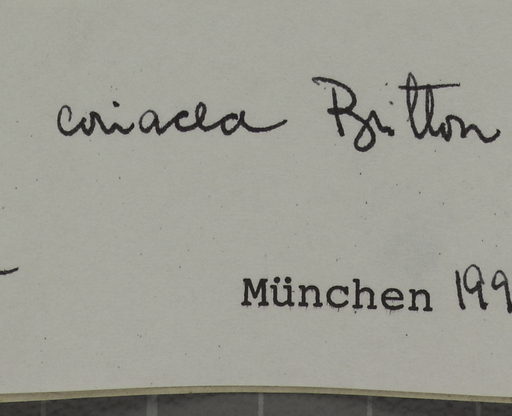 coriacea Britton
München 199